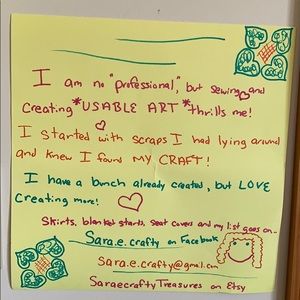 I am no "professional," but sewing and
creating *USABLE ART* thrills me!
I started with scraps I had lying around
and knew I found MY CRAFT!
I have a bunch already created, but LOVE
creating more!
Skirts, blanket starts, seat covers and my list goes on...
Sara.e.crafty on Facebook
Sara.e.crafty@gmail.com
SaraecraftyTreasures on Etsy